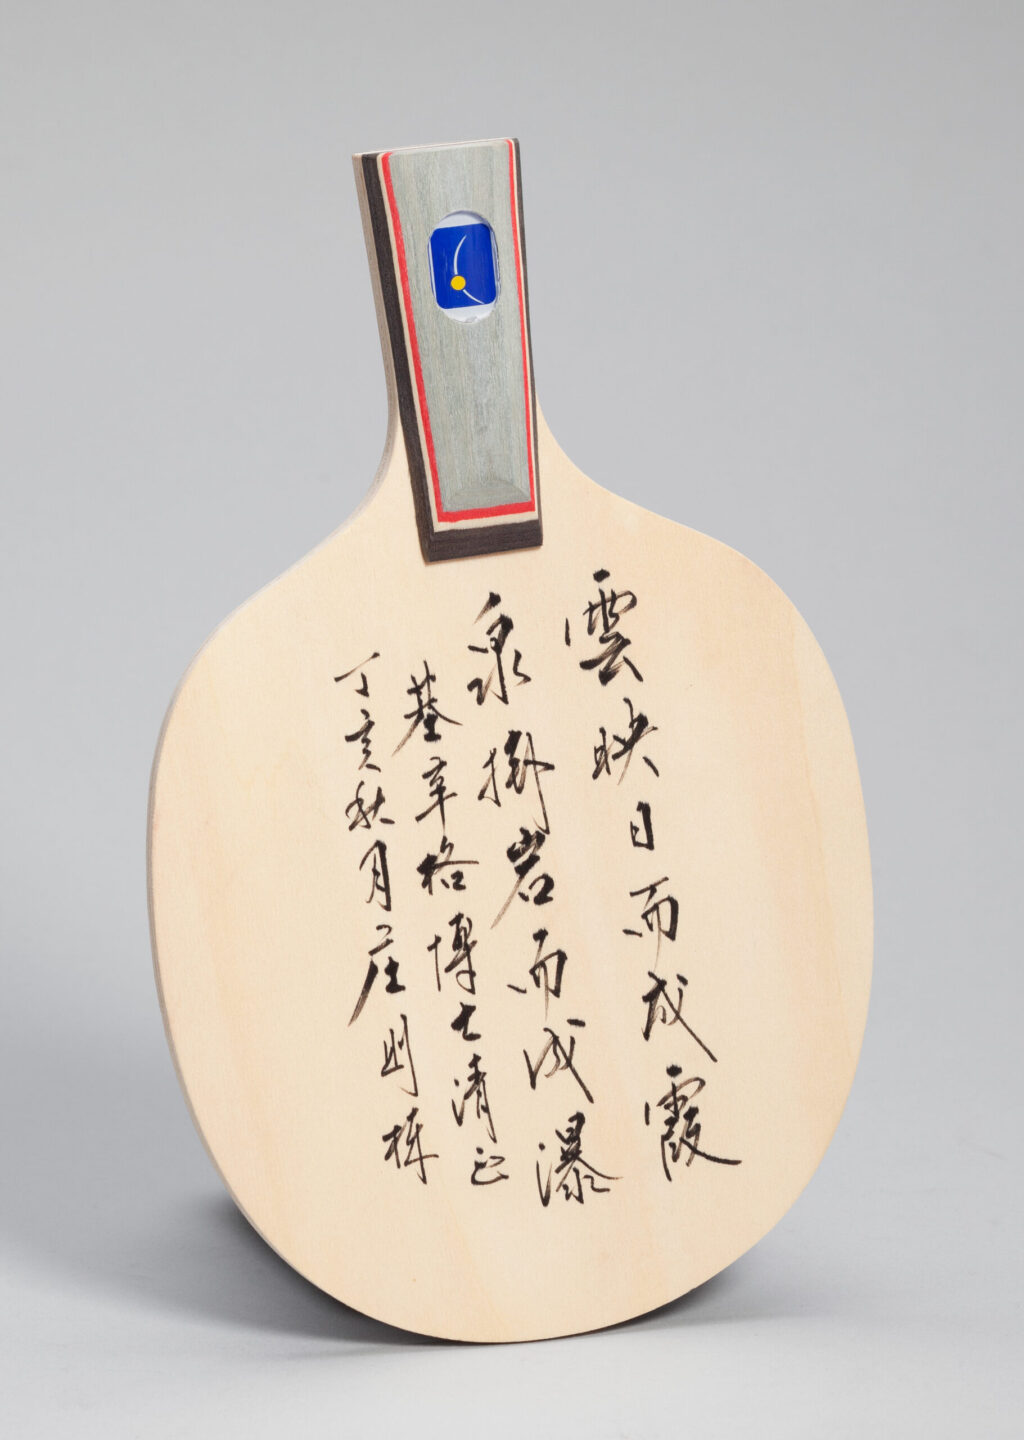 雲映日而成霞
泉掛岩而成瀑
基辛格博士清正
丁亥秋月庄則棟